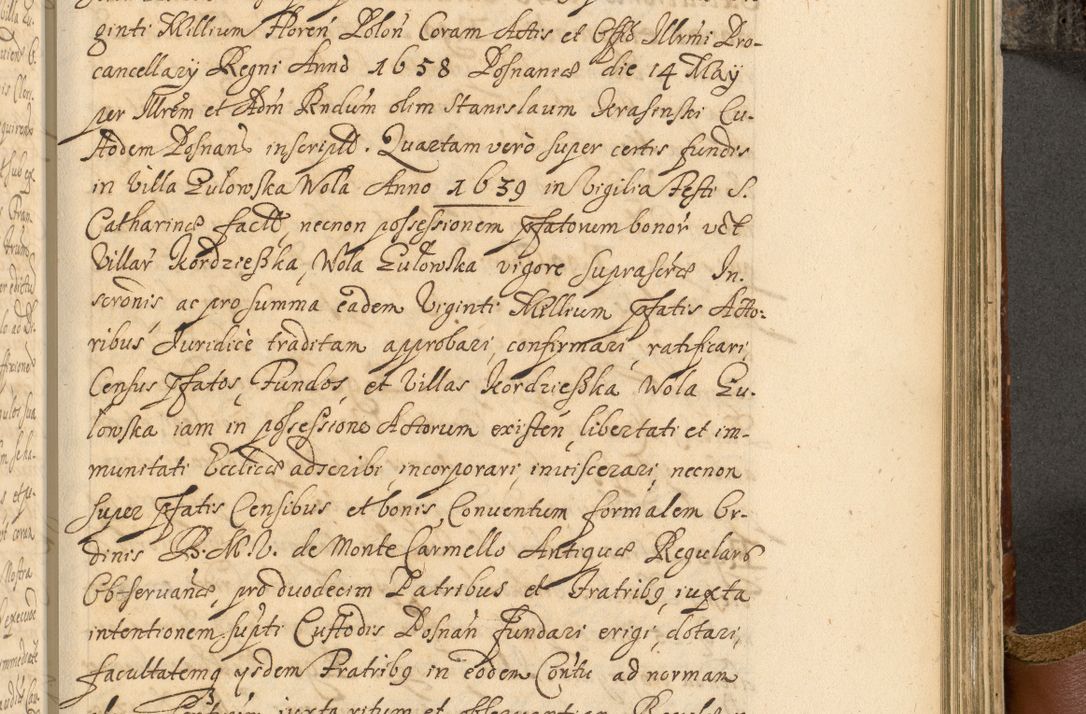 ginti Millium Floren̄ Polon̄ Coram Actis et Offō Illrmi Pro-
cancellarij Regni Annō 1658 Posnaniæ die 14 May
per Illrēm et Adm̄ Rn̄dum olim Stanislaum Krasinski Cu-
stodem Posnans̄ inscriptā. Quartam verò super certis fundis
in Villa Zulowska Wola Anno 1639 in Vigilia Festi S.
Catharinæ factā, necnon possessionem pfatorum bonor̄ vct
Villar̄ Kordzieszka, Wola Zułowska vigore suprascrīæ In-
scrōnis ac pro summa eadem Viginti Millium pfatis Acto-
ribus Juridicè traditam approbari, confirmari, ratificari,
Census pfatos, Fundos, et Villas Kordzieszka, Wola Zu-
lowska iam in possessione Actorum existen̄, libertati et im-
munitati Eccliæ adscribi, incorporari, inviscerari, necnon
super pfatis Censibus et bonis, Conventum formalem Or-
dinis B. M. V. de Monte Carmello Antiquæ Regularis
Observan̄æ, prō duodecim Patribus et Fratribq, iuxta
intentionem supti Custodis Posnan̄ fundari, erigi, dotari,
facultatemq ysdem Fratribq in eōdem Contu ad norman
iuxta ritum et observan
villa
Nostra